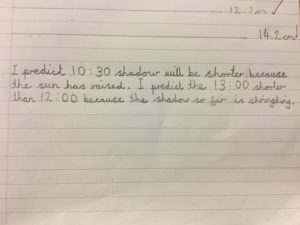 14.2cm
I predict 10:30 shadow will be shorter because
the sun has raised. I predict the 13:00 shorter
than 12:00 because the shadow so far is shringking.